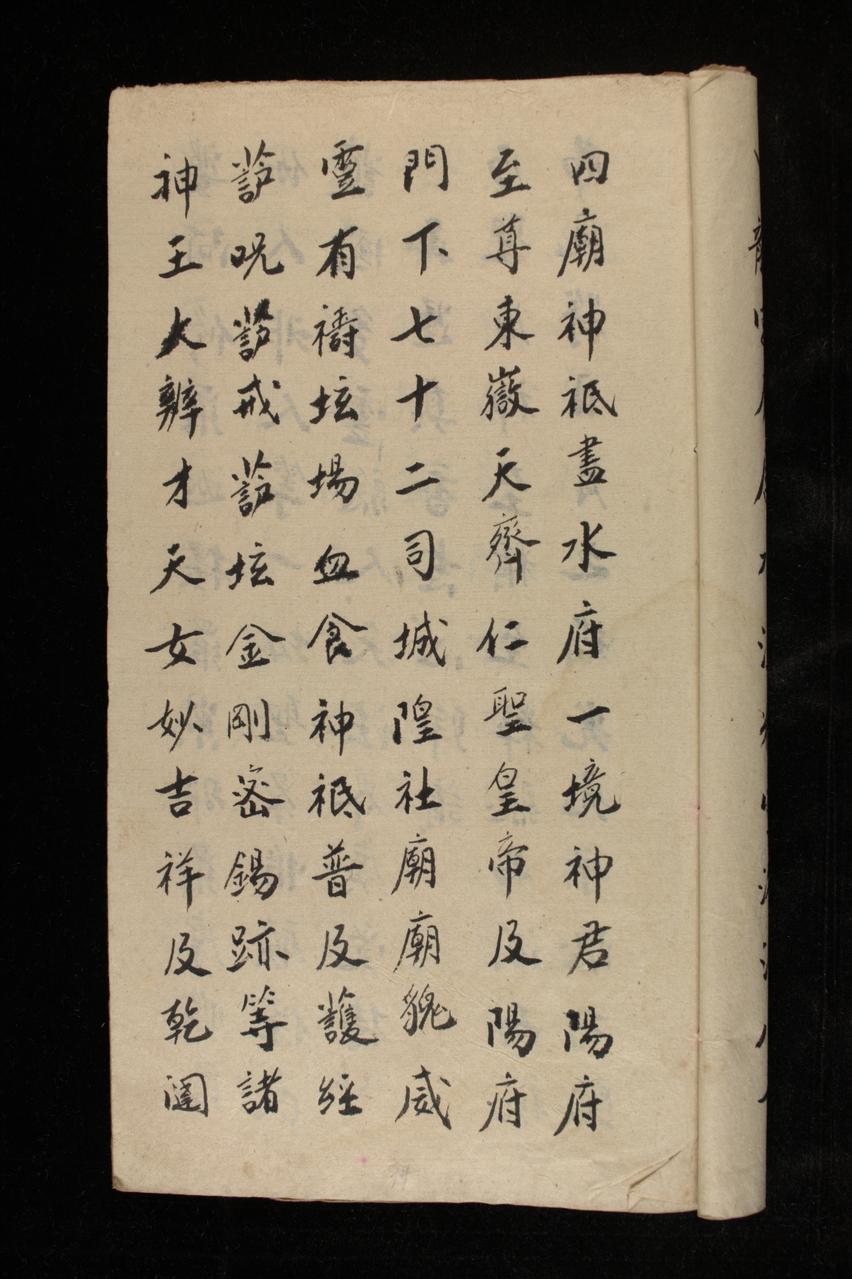 四廟神祇盡水府一境神君陽府
至尊東嶽天齊仁聖皇帝及陽府
門下七十二司城隍社廟廟貌威
靈有禱坛場血食神祇普及護經
護呪護戒護坛金剛密錫跡等諸
神王大辨才天女妙吉祥及乾闥